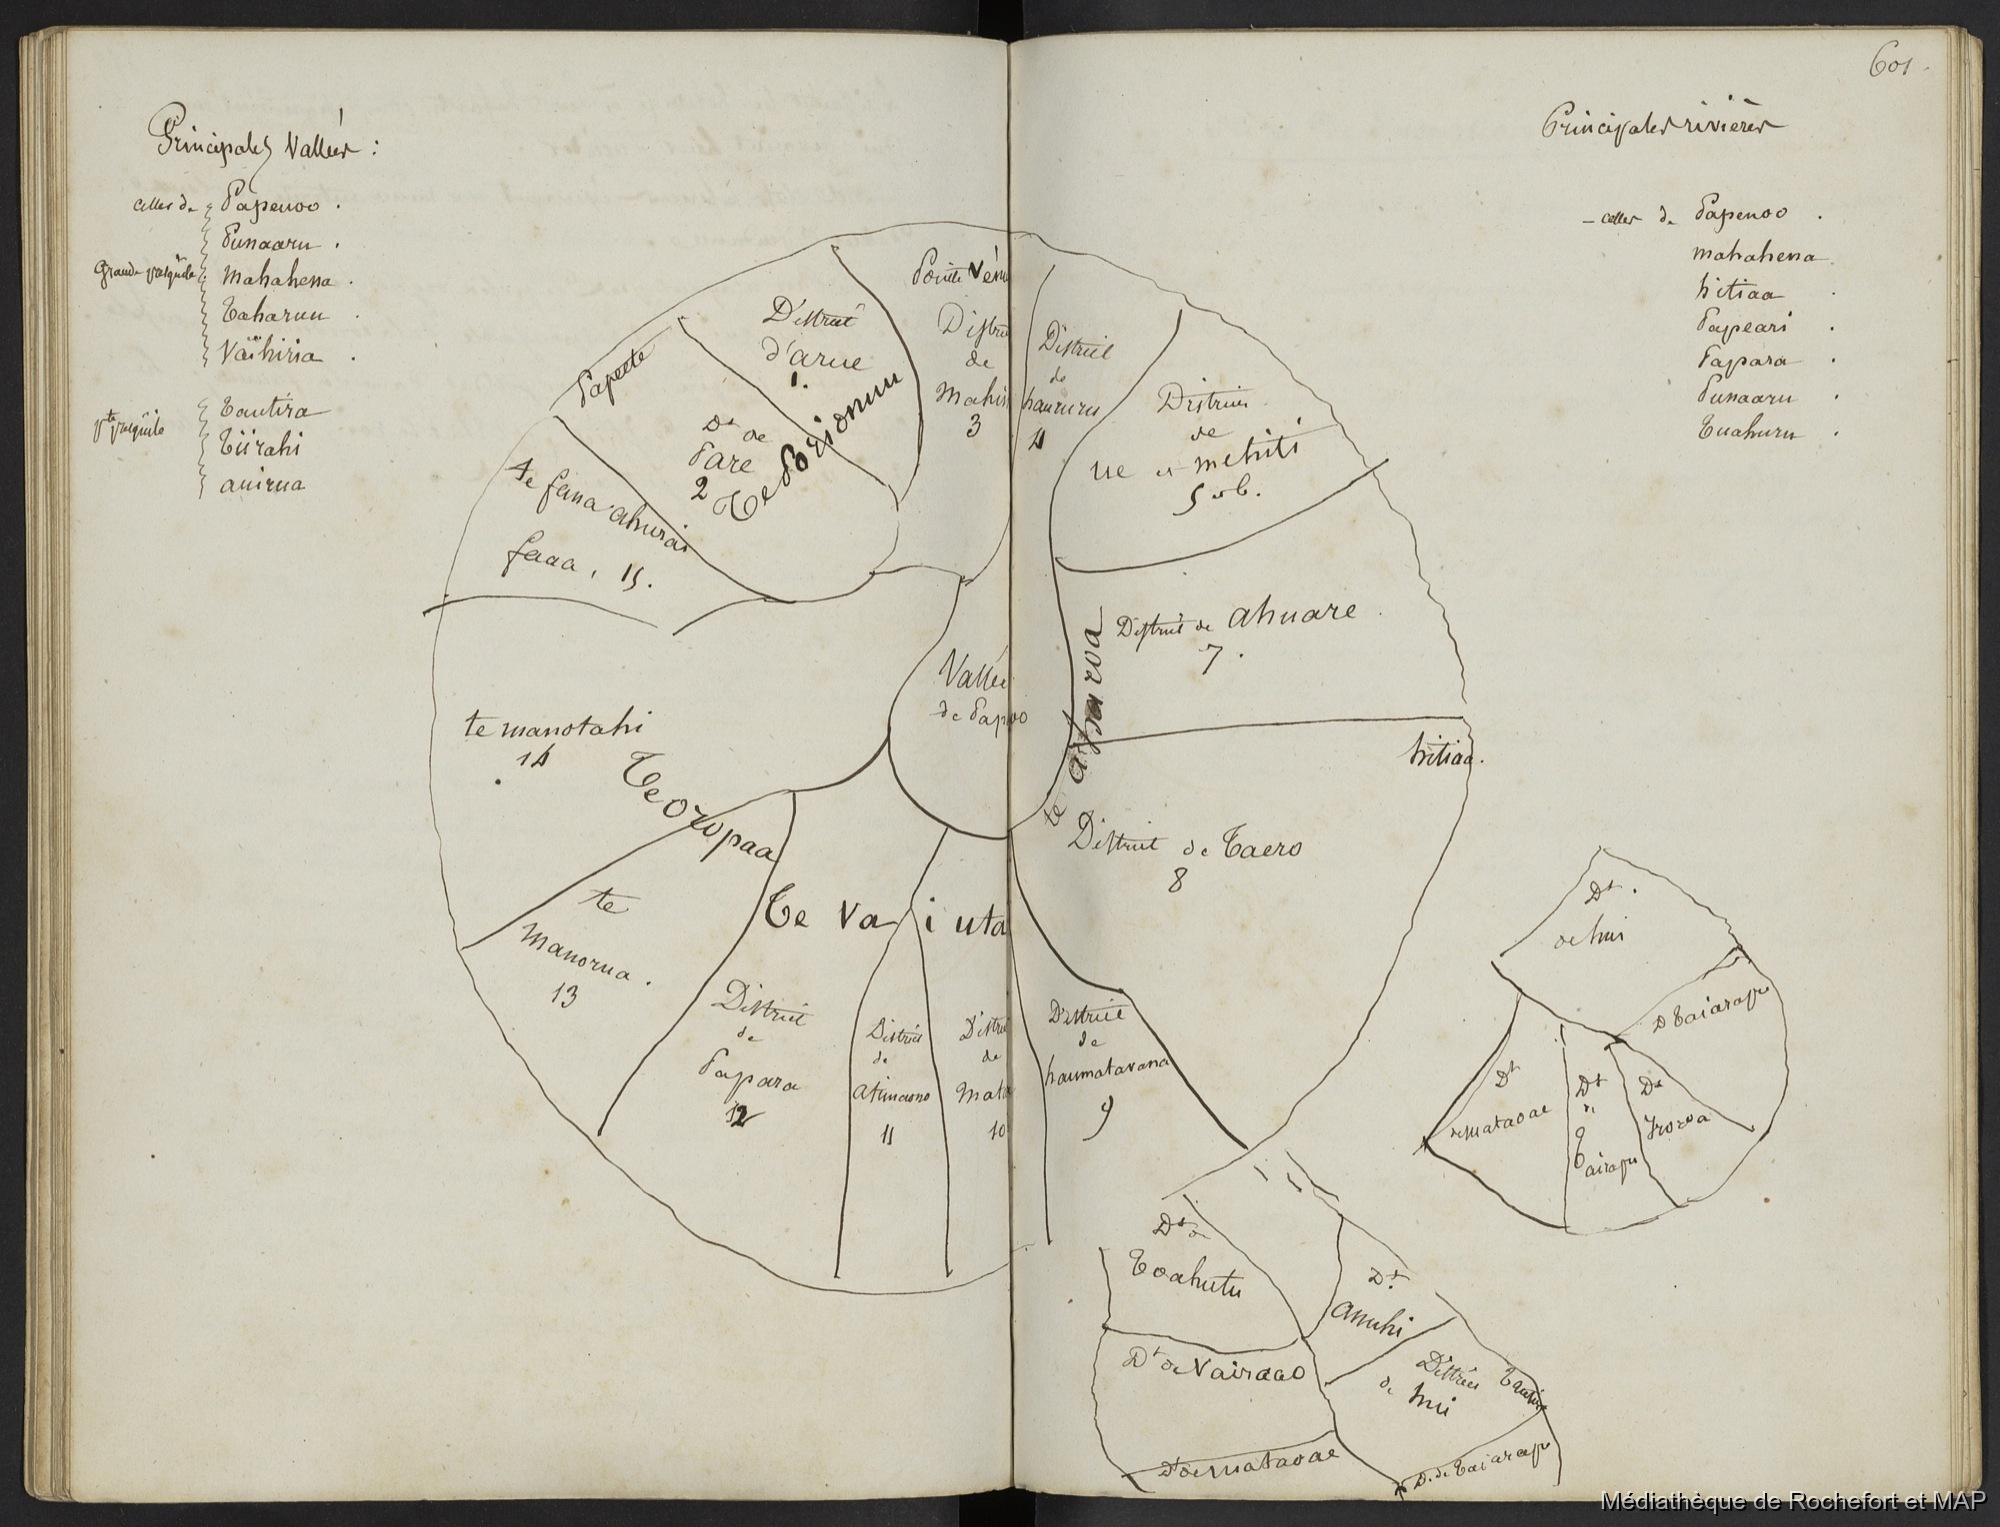 601.
Principales Vallées :
celles de Papenoo .
Punaaru .
Grande presqu'ile Mahahena .
Taharuu .
Vaïhiria .
pte presqu'ile Tautira
Tiirahi
auirua
Principales rivières
- celles de Papenoo .
mahahena .
hitiaa .
Papeari .
Papara .
Punaaru .
Tuahuru .
Papeete
District
d'arue
1.
Dt de
Pare
2
Te Porionuu
Pointe Vénu
Distri
de
Mahin
3
District
de
haururu
4
District
de
ue et mehiti
5 et 6.
Te fana ahurai
faaa , 15.
District de ahuare
7.
te aharoa
Vallée
de Papnoo
te manotahi
14
Te oropaa
hitiaa.
District de Taero
8
te
manorua .
13
Te Va i uta
District
de
Papara
12
District
de
Atimaono
11
Distri
de
Mata
10
District
de
haumatavana
9
Dt .
de hui
D Taiarapu
Dt
de mataoae
Dt
de
Tairapu
Dt
Dt de
Toahutu
Dt
anuhi
Dt de Vairaao
District
de hui
Tautira
Dt de mataoae
D. de Taiarap
Médiathèque de Rochefort et MAP